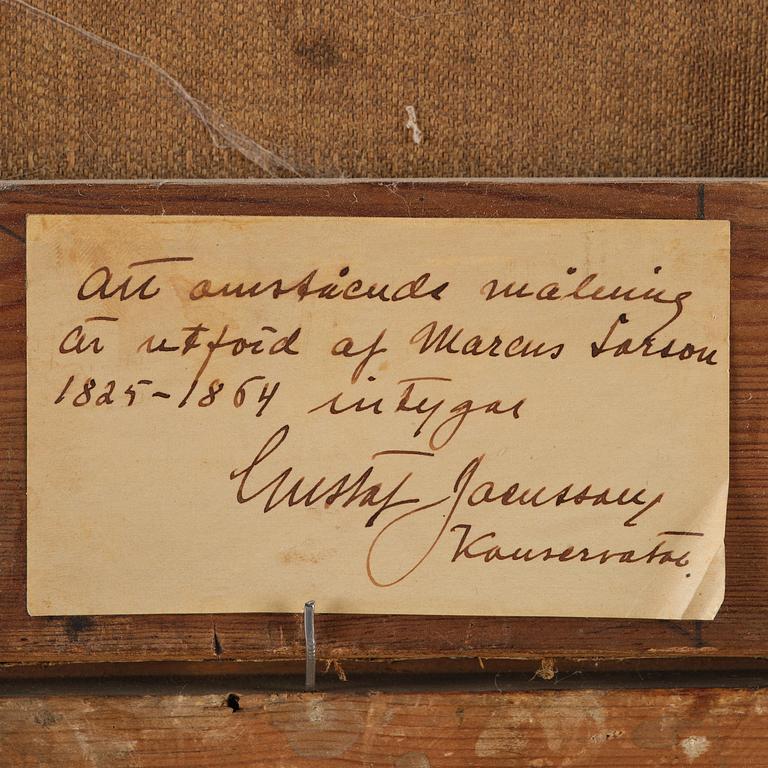 Att omstående målning
är utförd af Marcus Larson
1825-1864 intygar
Gustaf Jaensson
Konservator.